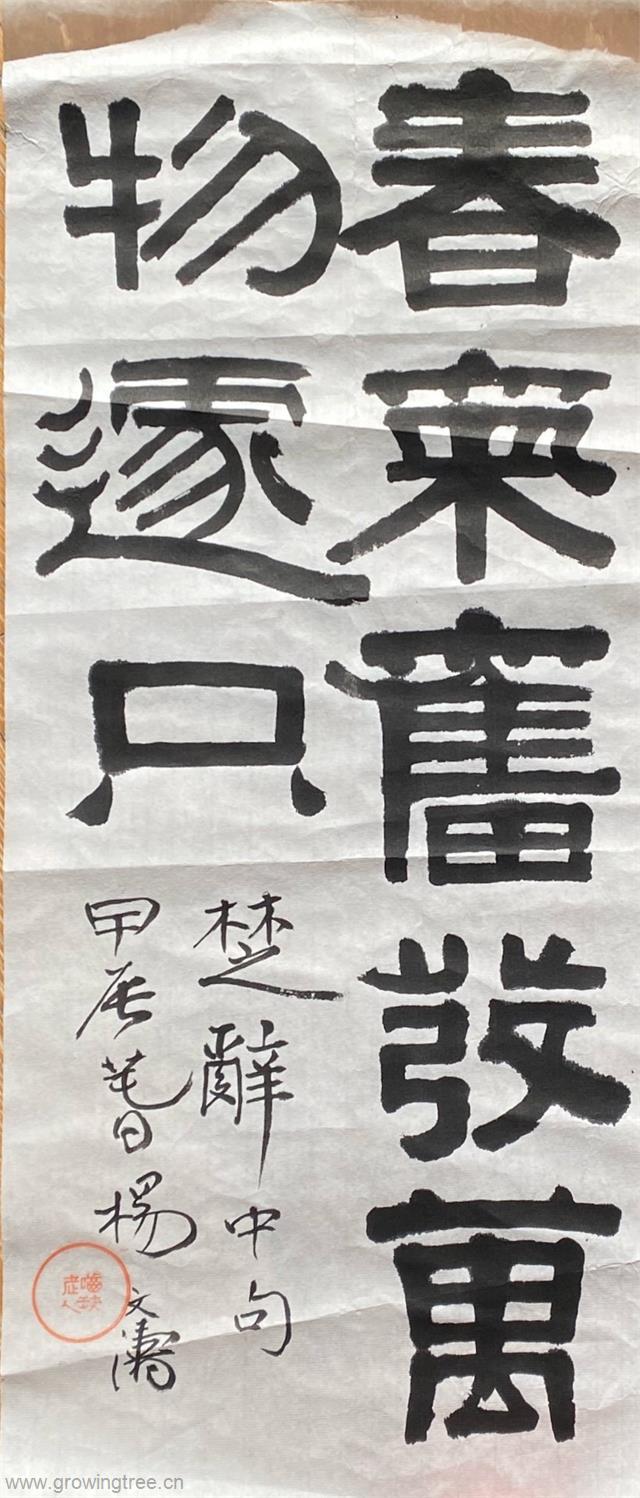 春氣奮發萬
物遽只
楚辭中句
甲辰萅楊文濤
www.growingtree.cn